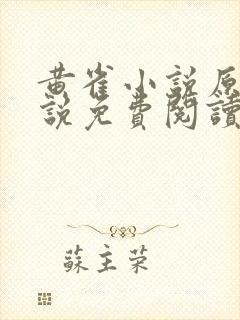 黄雀小說原
說免費閱讀
蘇主荣